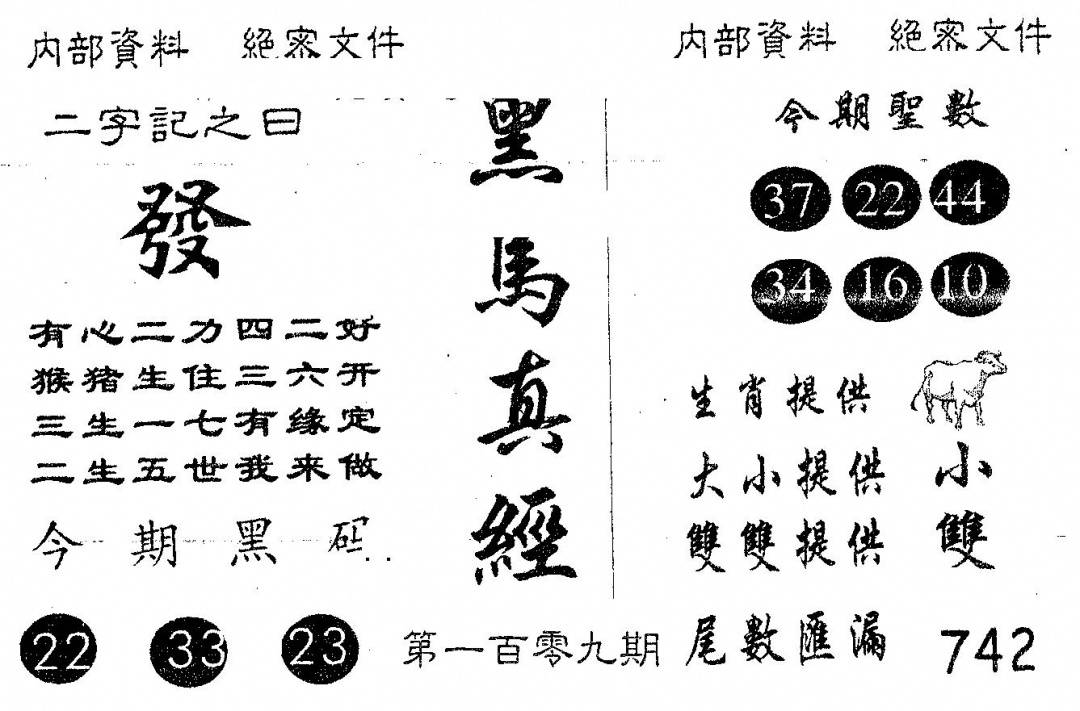 内部資料 絕密文件
二字記之曰
發
有心二力四二好
猴猪生住三六开
三生一七有缘定
二生五世我来做
今期黑码
22 33 23
黑馬真經
第一百零九期
内部資料 絕密文件
今期聖數
37 22 44
34 16 10
生肖提供
大小提供 小
雙雙提供 雙
尾數匯漏 742